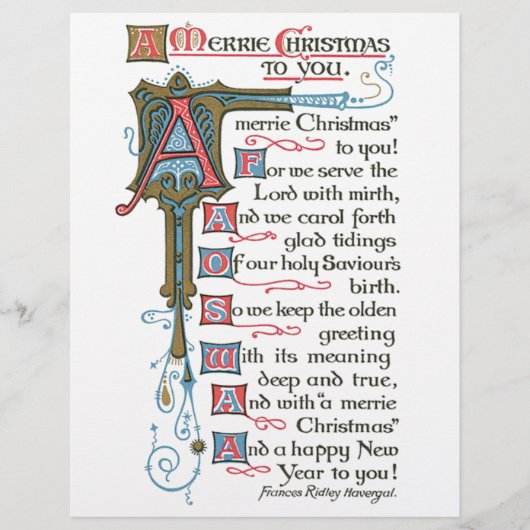 A MERRIE CHRISTMAS
TO YOU.
A
merrie Christmas"
to you!
For we serve the
Lord with mirth,
And we carol forth
glad tidings
Of our holy Saviour's
birth.
So we keep the olden
greeting
With its meaning
deep and true,
And with "a merrie
Christmas"
And a happy New
Year to you!
Frances Ridley Havergal.